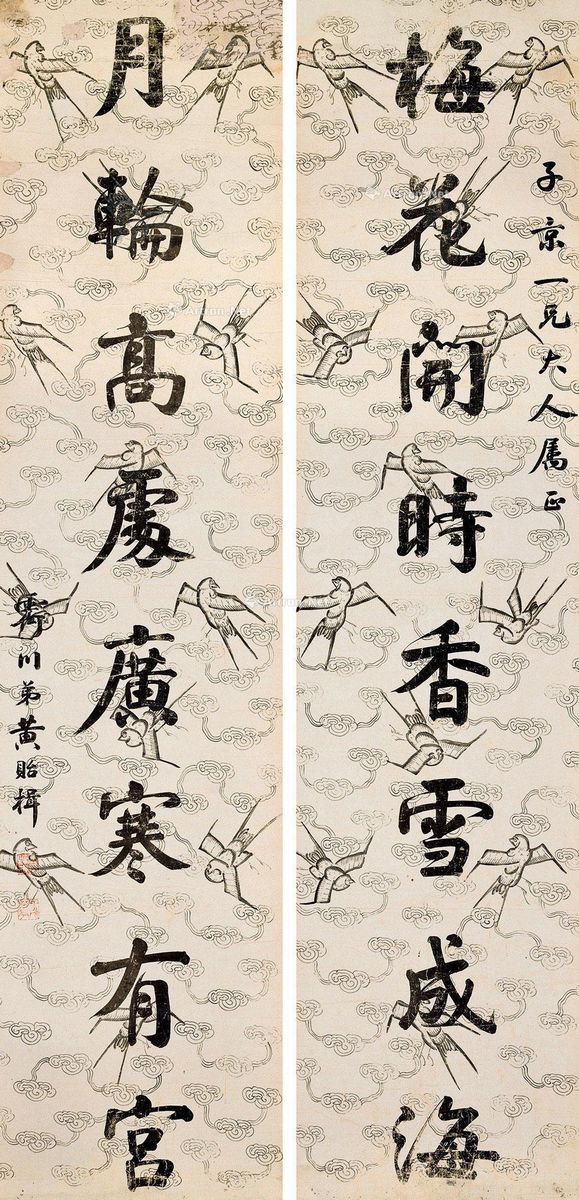 子京一兄大人属正
梅花開時香雪成海
月輪高處廣寒有宮
霽川弟黄貽楫
Artron.Net